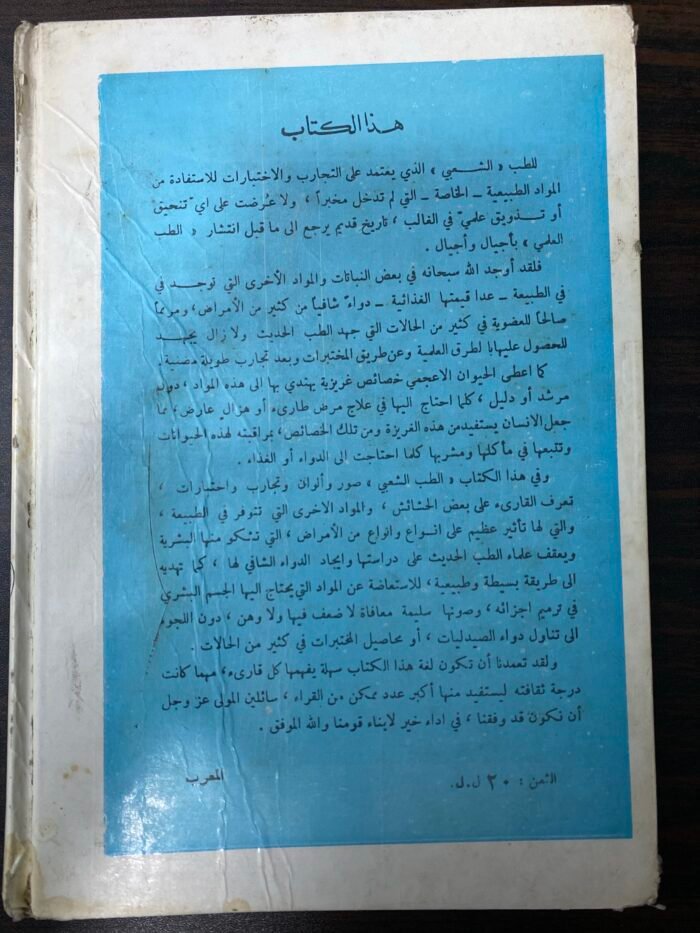 هذا الكتاب
للطب « الشعبي » الذي يعتمد على التجارب والاختبارات للاستفادة من
المواد الطبيعية ــ الخاصة ــ التي لم تدخل مخبراً ، ولا عُرضت على اي تنحيق
أو تــذويق علميّ في الغالب ، تاريخ قديم يرجع الى ما قبل انتشار « الطب
العلمي » بأجيال وأجيال .
فلقد أوجد الله سبحانه في بعض النباتات والمواد الأخرى التي توجــد في
في الطبيعة ــ عدا قيمتها الغذائية ــ دواءً شافياً من كثير من الأمراض، ومرمماً
صالحاً للعضوية في كثير من الحالات التي جهد الطب الحديث ولا زال يجهــد
للحصول عليها بالطرق العلمية وعن طريق المختبرات وبعد تجارب طويلة مضنية .
كما اعطى الحيوان الاعجمي خصائص غريزية يهتدي بها الى هذه المواد ، دون
مرشد أو دليل ، كلما احتاج اليها في علاج مرض طارىء أو هزال عارض، مما
جعل الانسان يستفيد من هذه الغريزة ومن تلك الخصائص، بمراقبته لهذه الحيوانات
وتتبعها في مأكلها ومشربها كلما احتاجت الى الدواء أو الغذاء .
وفي هذا الكتاب « الطب الشعبي » صور وألوان وتجارب واختبارات ،
تعرف القارىء على بعض الحشائش ، والمواد الاخرى التي تتوفر في الطبيعة ،
والتي لها تأثير عظيم على انــواع وانواع من الأمراض ، التي تشكو منها البشرية
ويعقف علماء الطب الحديث على دراستها وايجاد الدواء الشافي لها ، كما تهديه
الى طريقة بسيطة وطبيعية ، للاستعاضة عن المواد التي يحتاج اليها الجسم البشري
في ترميم اجزائه ، وصونها سليمة معافاة لا ضعف فيها ولا وهن ، دون اللجوء
الى تناول دواء الصيدليات ، أو محاصيل المختبرات في كثير من الحالات .
ولقد تعمدنا أن تكون لغة هذا الكتاب سهلة يفهمها كل قارىء، مهما كانت
درجة ثقافته ليستفيد منها أكبر عدد ممكن من القراء ، سائلين المولى عز وجل
أن نكون قد وفقنا ، في اداء خير لابناء قومنا والله الموفق .
المعرب
الثمن : ٢٠ ل.ل.